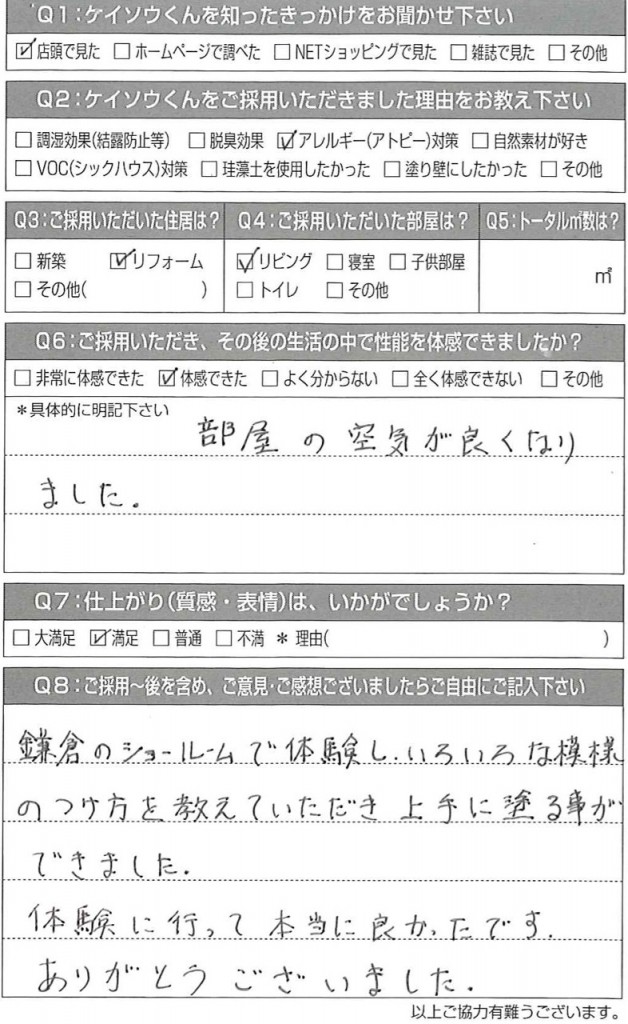 Q1:ケイソウくんを知ったきっかけをお聞かせ下さい
☑店頭で見た □ホームページで調べた □NETショッピングで見た □雑誌で見た □その他
Q2:ケイソウくんをご採用いただきました理由をお教え下さい
□調湿効果(結露防止等) □脱臭効果 ☑アレルギー(アトピー)対策 □自然素材が好き
□VOC(シックハウス)対策 □珪藻土を使用したかった □塗り壁にしたかった □その他
Q3:ご採用いただいた住居は? Q4:ご採用いただいた部屋は? Q5:トータル㎡数は?
□新築 ☑リフォーム ☑リビング □寝室 □子供部屋 ㎡
□その他( ) □トイレ □その他
Q6:ご採用いただき、その後の生活の中で性能を体感できましたか?
□非常に体感できた ☑体感できた □よく分からない □全く体感できない □その他
*具体的に明記下さい
部屋の空気が良くなり
ました。
Q7:仕上がり(質感・表情)は、いかがでしょうか?
□大満足 ☑満足 □普通 □不満 *理由( )
Q8:ご採用〜後を含め、ご意見・ご感想ございましたらご自由にご記入下さい
鎌倉のショールームで体験し、いろいろな模様
のつけ方を教えていただき上手に塗る事が
できました。
体験に行って本当に良かったです。
ありがとうございました。
以上ご協力有難うございます。